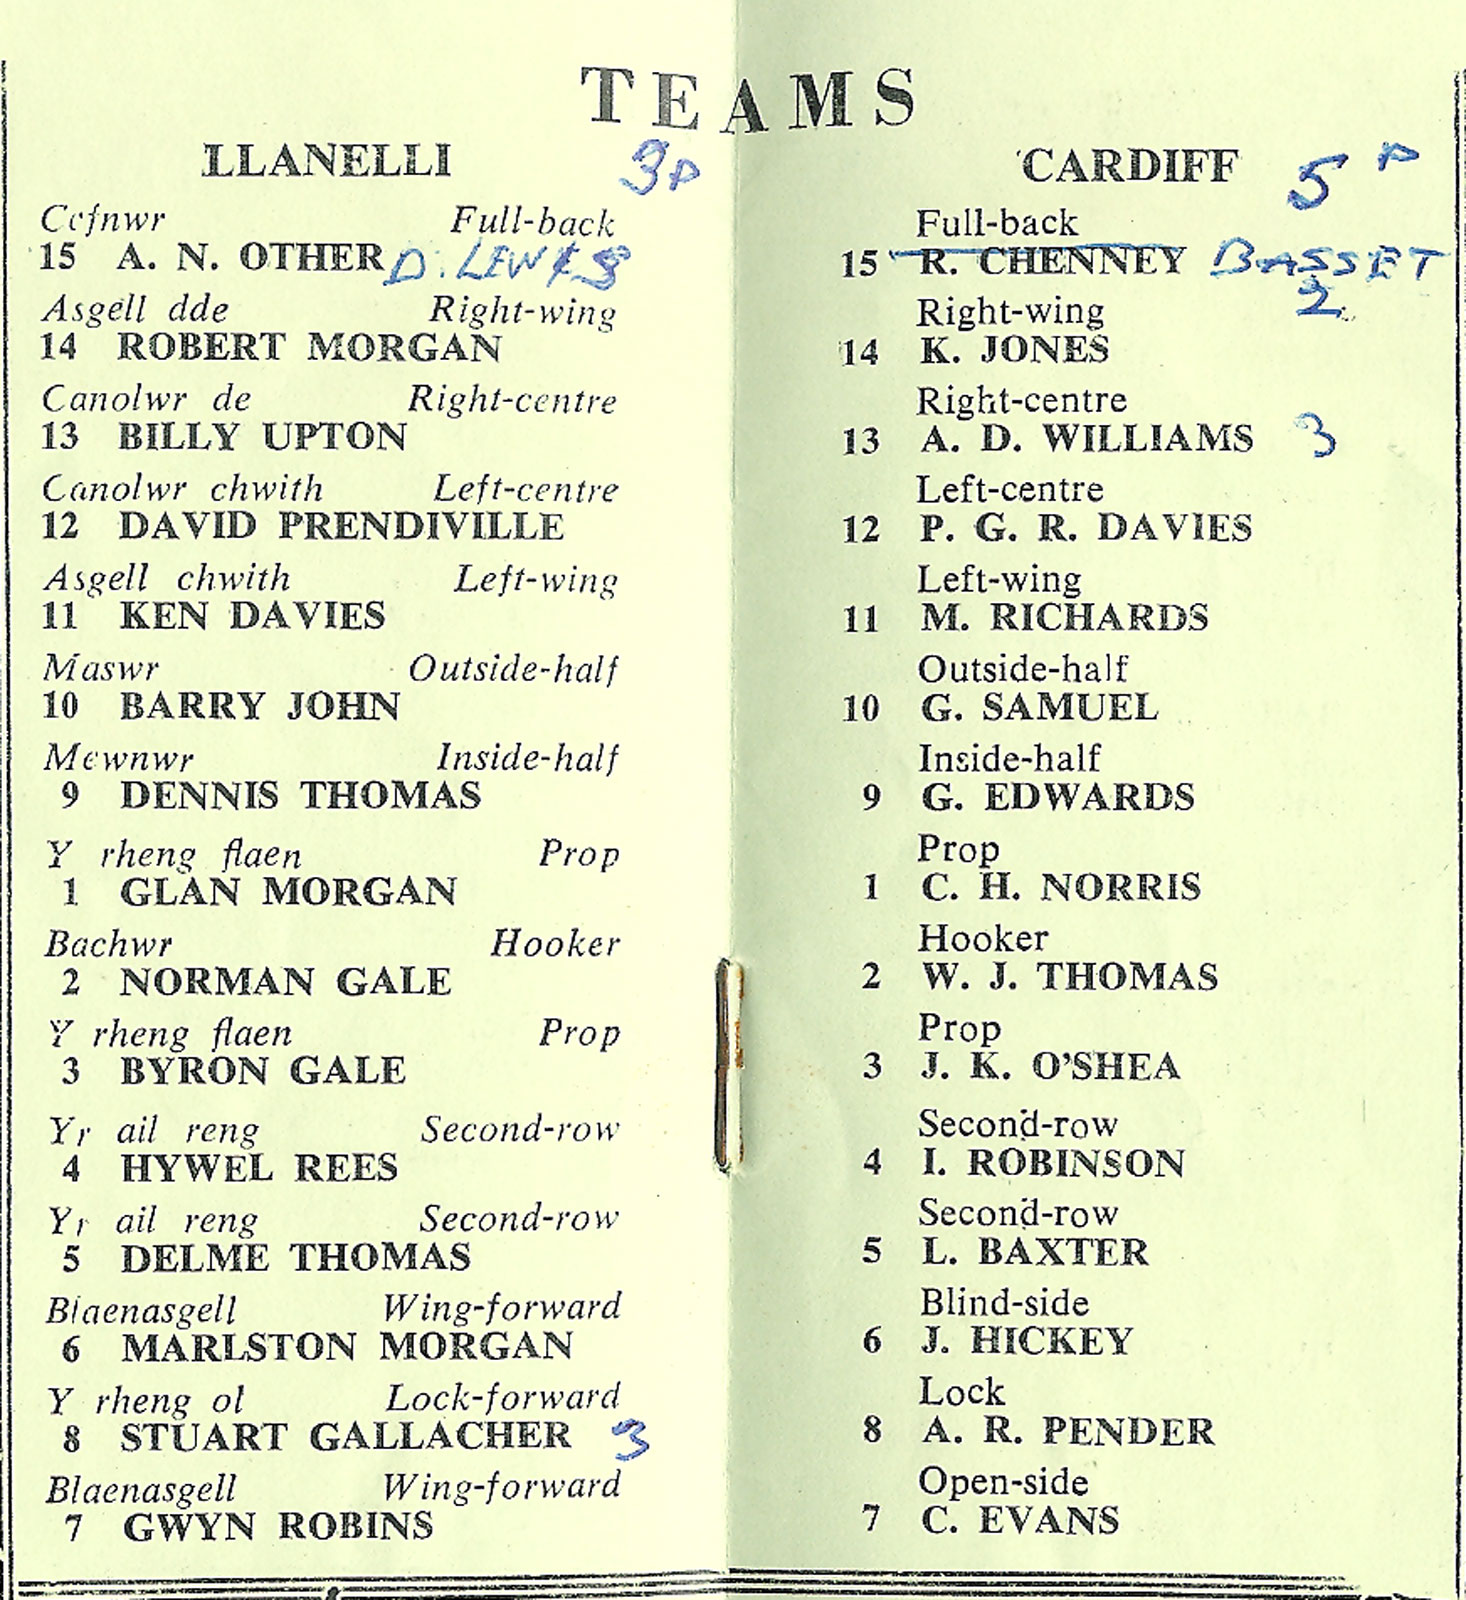 TEAMS
LLANELLI 3P
Cefnwr Full-back
15 A. N. OTHER D. LEWIS
Asgell dde Right-wing
14 ROBERT MORGAN
Canolwr de Right-centre
13 BILLY UPTON
Canolwr chwith Left-centre
12 DAVID PRENDIVILLE
Asgell chwith Left-wing
11 KEN DAVIES
Maswr Outside-half
10 BARRY JOHN
Mewnwr Inside-half
9 DENNIS THOMAS
Y rheng flaen Prop
1 GLAN MORGAN
Bachwr Hooker
2 NORMAN GALE
Y rheng flaen Prop
3 BYRON GALE
Yr ail reng Second-row
4 HYWEL REES
Yr ail reng Second-row
5 DELME THOMAS
Blaenasgell Wing-forward
6 MARLSTON MORGAN
Y rheng ol Lock-forward
8 STUART GALLACHER 3
Blaenasgell Wing-forward
7 GWYN ROBINS
CARDIFF 5P
Full-back
15 R. CHENNEY BASSET
2
Right-wing
14 K. JONES
Right-centre
13 A. D. WILLIAMS 3
Left-centre
12 P. G. R. DAVIES
Left-wing
11 M. RICHARDS
Outside-half
10 G. SAMUEL
Inside-half
9 G. EDWARDS
Prop
1 C. H. NORRIS
Hooker
2 W. J. THOMAS
Prop
3 J. K. O'SHEA
Second-row
4 I. ROBINSON
Second-row
5 L. BAXTER
Blind-side
6 J. HICKEY
Lock
8 A. R. PENDER
Open-side
7 C. EVANS